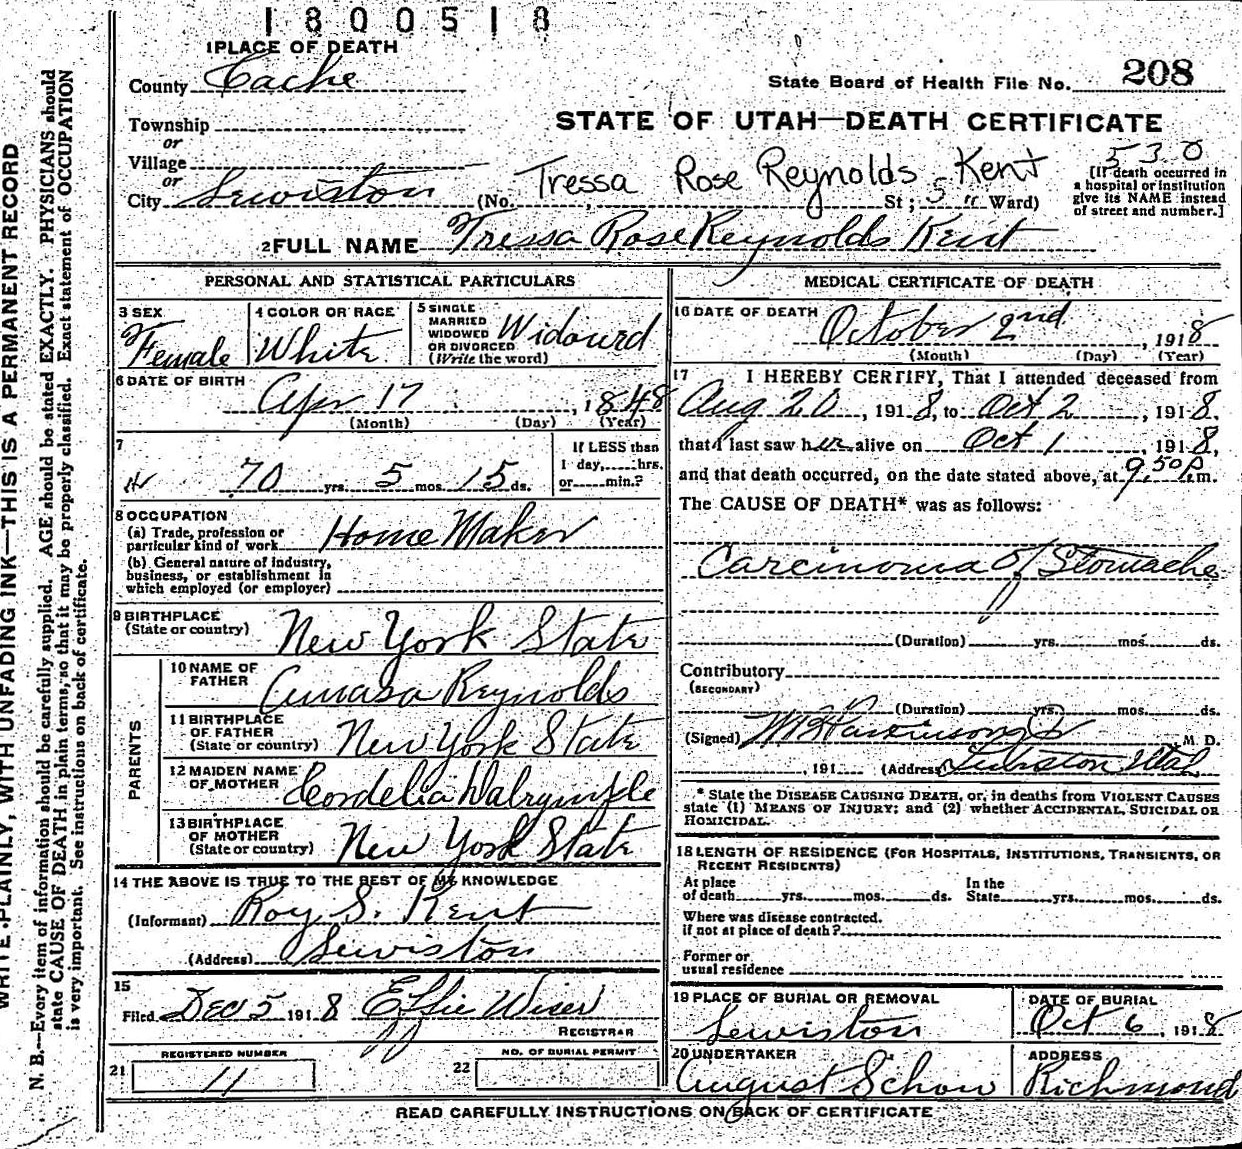 1800518
1 PLACE OF DEATH
County Cache
State Board of Health File No. 208
Township
or
Village
or
City Lewiston
STATE OF UTAH—DEATH CERTIFICATE
530
(No. Tressa Rose Reynolds Kent St; 5 " Ward)
[If death occurred in
a hospital or institution
give its NAME instead
of street and number.]
2 FULL NAME Tressa Rose Reynolds Kent
PERSONAL AND STATISTICAL PARTICULARS
3 SEX
Female
4 COLOR OR RACE
White
5 SINGLE
MARRIED
WIDOWED
OR DIVORCED
(Write the word)
Widowed
6 DATE OF BIRTH
Apr 17, 1848
(Month) (Day) (Year)
7
70 yrs. 5 mos. 15 ds.
If LESS than
1 day, hrs.
or min.?
8 OCCUPATION
(a) Trade, profession or
particular kind of work Home Maker
(b) General nature of industry,
business, or establishment in
which employed (or employer)
9 BIRTHPLACE
(State or country) New York State
PARENTS
10 NAME OF
FATHER Amasa Reynolds
11 BIRTHPLACE
OF FATHER
(State or country) New York State
12 MAIDEN NAME
OF MOTHER Cordelia Dalrymple
13 BIRTHPLACE
OF MOTHER
(State or country) New York State
14 THE ABOVE IS TRUE TO THE BEST OF MY KNOWLEDGE
(Informant) Roy S. Kent
(Address) Lewiston
15
Filed Dec 5 1918 Effie Wiser
REGISTRAR
REGISTERED NUMBER
21 11
NO. OF BURIAL PERMIT
22
MEDICAL CERTIFICATE OF DEATH
16 DATE OF DEATH
October 2nd, 1918
(Month) (Day) (Year)
17 I HEREBY CERTIFY, That I attended deceased from
Aug 20, 1918, to Oct 2, 1918,
that I last saw her alive on Oct 1, 1918,
and that death occurred, on the date stated above, at 9.50 P.m.
The CAUSE OF DEATH* was as follows:
Carcinoma of Stomache
(Duration) yrs. mos. ds.
Contributory
(SECONDARY)
(Duration) yrs. mos. ds.
(Signed) M. D.
, 191 (Address) Lewiston Utah
* State the DISEASE CAUSING DEATH, or, in deaths from VIOLENT CAUSES
state (1) MEANS OF INJURY; and (2) whether ACCIDENTAL, SUICIDAL OR
HOMICIDAL.
18 LENGTH OF RESIDENCE (FOR HOSPITALS, INSTITUTIONS, TRANSIENTS, OR
RECENT RESIDENTS)
At place
of death yrs. mos. ds.
In the
State yrs. mos. ds.
Where was disease contracted.
if not at place of death?
Former or
usual residence
19 PLACE OF BURIAL OR REMOVAL
Lewiston
DATE OF BURIAL
Oct 6, 1918
20 UNDERTAKER
August Schow
ADDRESS
Richmond
READ CAREFULLY INSTRUCTIONS ON BACK OF CERTIFICATE
WRITE PLAINLY, WITH UNFADING INK—THIS IS A PERMANENT RECORD
N. B.—Every item of information should be carefully supplied. AGE should be stated EXACTLY. PHYSICIANS should
state CAUSE OF DEATH in plain terms, so that it may be properly classified. Exact statement of OCCUPATION
is very important. See instructions on back of certificate.